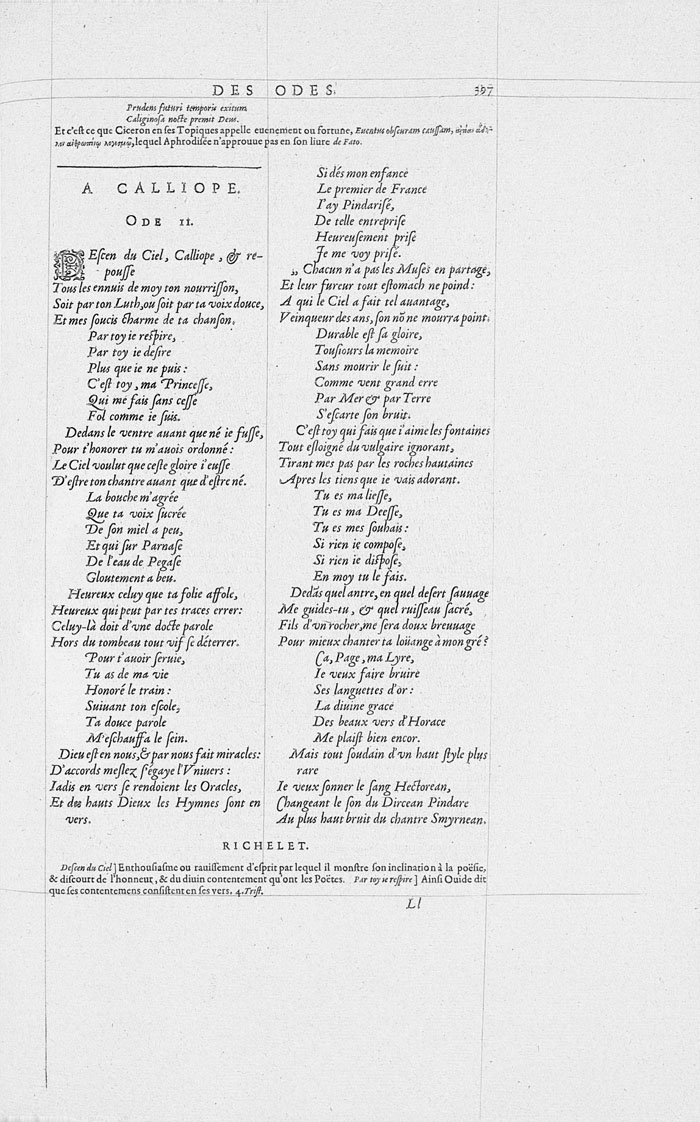 DES ODES. 397
Prudens futuri temporis exitum
Caliginosa nocte premit Deus.
Et c'est ce que Ciceron en ses Topiques appelle euenement ou fortune, Euentus obscuram caussam,
lequel Aphrodisée n'approuue pas en son liure de Fato.
A CALLIOPE.
ODE II.
DEscen du Ciel, Calliope, & re-
pousse
Tous les ennuis de moy ton nourrisson,
Soit par ton Luth, ou soit par ta voix douce,
Et mes soucis charme de ta chanson.
Par toy ie respire,
Par toy ie desire
Plus que ie ne puis:
C'est toy, ma Princesse,
Qui me fais sans cesse
Fol comme ie suis.
Dedans le ventre auant que né ie fusse,
Pour t'honorer tu m'auois ordonné:
Le Ciel voulut que ceste gloire i'eusse
D'estre ton chantre auant que d'estre né.
La bouche m'agrée
Que ta voix sucrée
De son miel a peu,
Et qui sur Parnase
De l'eau de Pegase
Gloutement a beu.
Heureux celuy que ta folie affole,
Heureux qui peut par tes traces errer:
Celuy-là doit d'vne docte parole
Hors du tombeau tout vif se déterrer.
Pour t'auoir seruie,
Tu as de ma vie
Honoré le train:
Suiuant ton escole,
Ta douce parole
M'eschauffa le sein.
Dieu est en nous, & par nous fait miracles:
D'accords meslez s'égaye l'Vniuers:
Iadis en vers se rendoient les Oracles,
Et des hauts Dieux les Hymnes sont en
vers.
Si dés mon enfance
Le premier de France
I'ay Pindarisé,
De telle entreprise
Heureusement prise
Je me voy prisé.
„ Chacun n'a pas les Muses en partage,
Et leur fureur tout estomach ne poind:
A qui le Ciel a fait tel auantage,
Veinqueur des ans, son nõ ne mourra point.
Durable est sa gloire,
Tousiours la memoire
Sans mourir le suit:
Comme vent grand erre
Par Mer & par Terre
S'escarte son bruit.
C'est toy qui fais que i'aime les fontaines
Tout esloigné du vulgaire ignorant,
Tirant mes pas par les roches hautaines
Apres les tiens que ie vais adorant.
Tu es ma liesse,
Tu es ma Deesse,
Tu es mes souhais:
Si rien ie compose,
Si rien ie dispose,
En moy tu le fais.
Dedãs quel antre, en quel desert sauuage
Me guides-tu, & quel ruisseau sacré,
Fils d'vn rocher, me sera doux breuuage
Pour mieux chanter ta loüange à mon gré?
Ça, Page, ma Lyre,
Ie veux faire bruire
Ses languettes d'or:
La diuine grace
Des beaux vers d'Horace
Me plaist bien encor.
Mais tout soudain d'vn haut style plus
rare
Ie veux sonner le sang Hectorean,
Changeant le son du Dircean Pindare
Au plus haut bruit du chantre Smyrnean.
RICHELET.
Descen du Ciel] Enthousiasme ou rauissement d'esprit par lequel il monstre son inclination à la poësie,
& discourt de l'honneur, & du diuin contentement qu'ont les Poëtes. Par toy ie respire] Ainsi Ouide dit
que ses contentemens consistent en ses vers. 4. Trist.
Ll